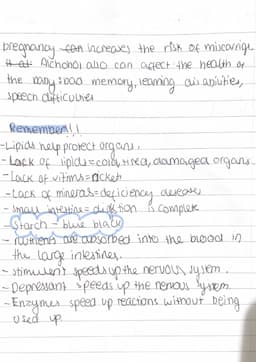 pregnancy can increases the risk of miscarriage.
Alchohol also can affect the health of
the baby: bad memory, learning disabilities,
speech difficulties
Remember!!
-Lipids help protect organs.
-Lack of lipids=cold, tired, damaged organs.
-Lack of vitims=ricket
-Lack of minerals=deficiency
- small intestine= digestion is complete
-Starch - blue black
- nutrients are absorbed into the blood in
the large intestines.
- stimulent speeds up the nervous system.
- Depressant speeds up the nervous system.
- Enzymes speed up reactions without being
used up.